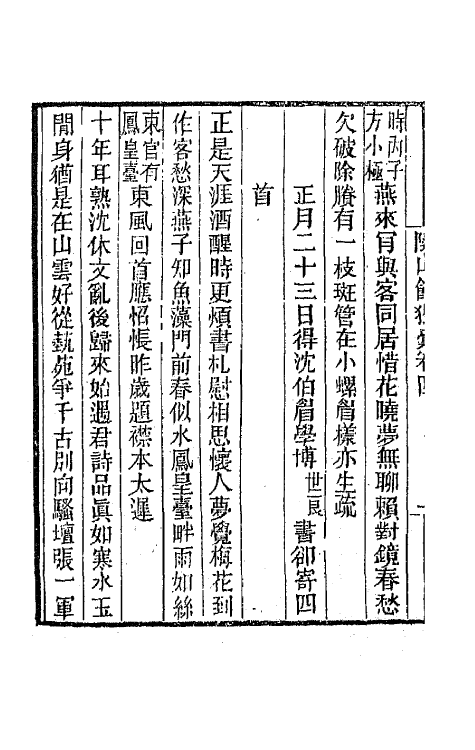 時內子
方小極燕來肎與客同居惜花曉夢無聊賴對鏡春愁
欠破除賸有一枝斑管在小螺眉樣亦生疏
正月二十三日得沈伯眉學博世良書卻寄四
首
正是天涯酒醒時更煩書札慰相思懷人夢覺梅花到
作客愁深燕子知魚藻門前春似水鳳皇臺畔雨如絲
東官有
鳳皇臺東風回首應怊悵昨歲題襟本太遲
十年耳熟沈休文亂後歸來始遇君詩品眞如寒水玉
閒身猶是在山雲好從藝苑爭千古別向騷壇張一軍